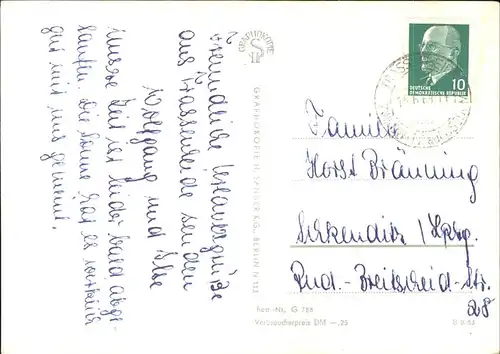 Freundliche Urlaubsgrüße
aus Prassenheide senden
Wolfgang und Else
Unsere Zeit ist leider bald abge-
laufen. Die Sonne hat es
gut mit uns gemeint.
GRAPHOKOPIE
GRAPHOKOPIE H. SPENGER K.G. BERLIN N 113
DEUTSCHE
DEMOKRATISCHE REPUBLIK
10
Familie
Horst Bräuning
Schkeuditz / Lpzg.
Rud.-Breitscheid-Str.
28
Best.-Nr. G 788
Verbraucherpreis DM —.25